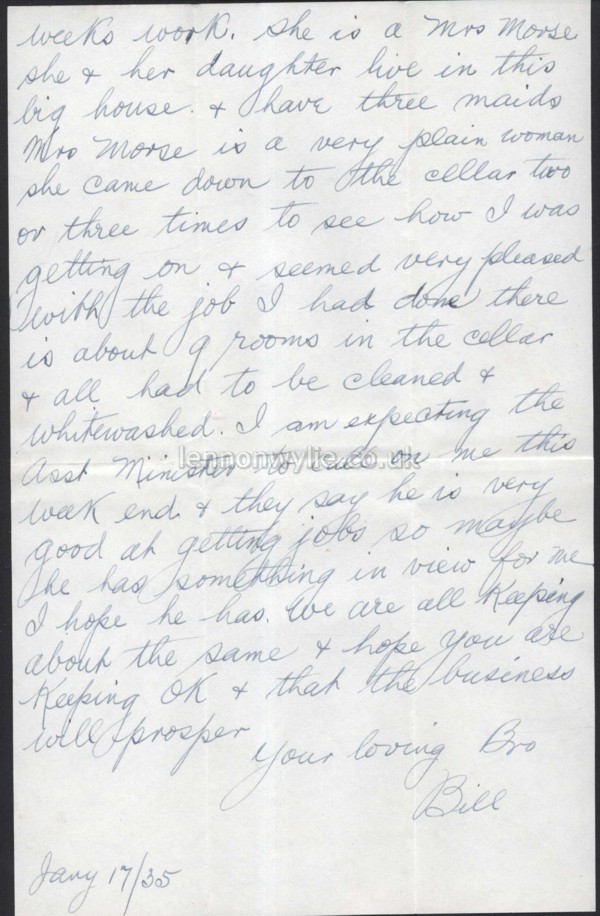 weeks work. she is a Mrs Morse
she & her daughter live in this
big house. & have three maids
Mrs Morse is a very plain woman
she came down to the cellar two
or three times to see how I was
getting on & seemed very pleased
with the job I had done there
is about 9 rooms in the cellar
& all had to be cleaned &
whitewashed. I am expecting the
Asst Minister to call on me this
week end. & they say he is very
good at getting jobs so maybe
he has something in view for me
I hope he has. We are all Keeping
about the same & hope you are
Keeping OK & that the business
will prosper
Your loving Bro
Bill
Jany 17/35
lennonwylie.co.uk